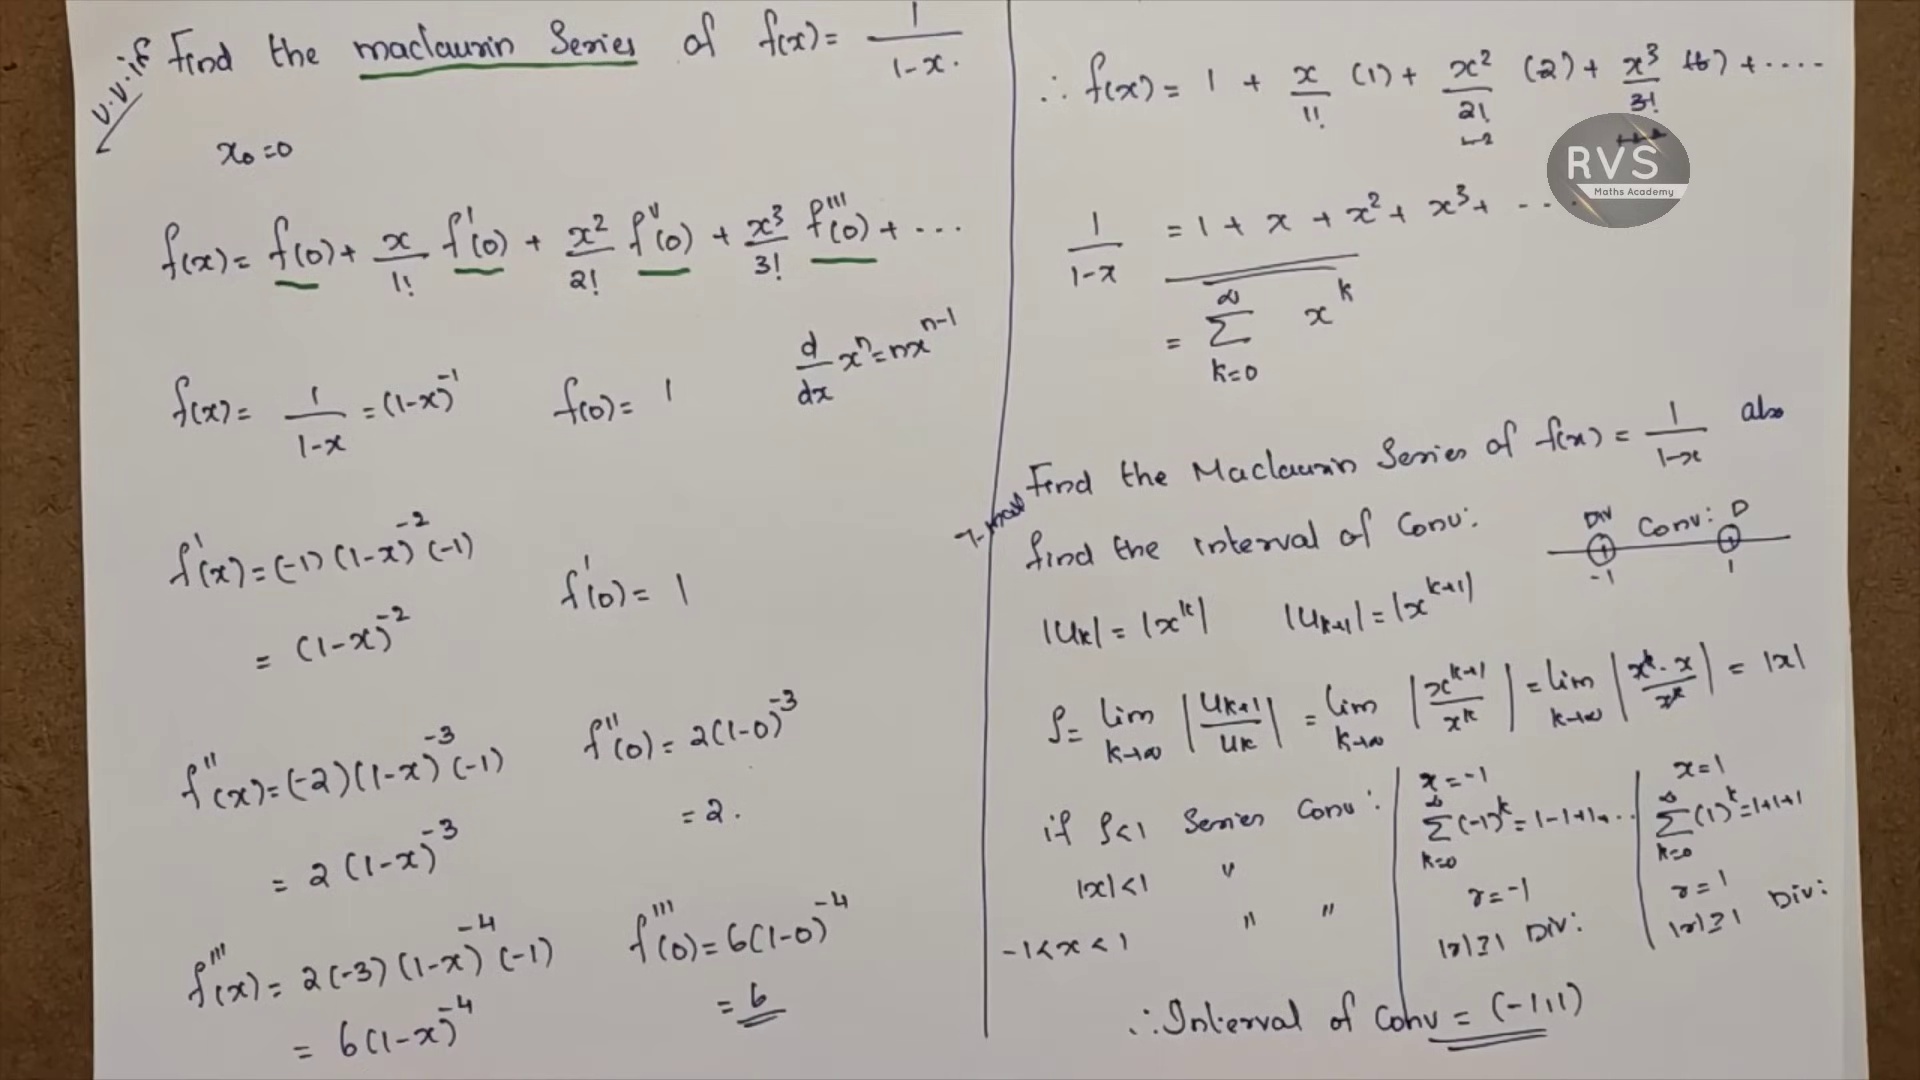 V.V.if Find the maclaurin Series of f(x) = 1/(1-x).
x₀=0
f(x) = f(0) + x/1! f'(0) + x²/2! f''(0) + x³/3! f'''(0) + ...
d/dx xⁿ = nxⁿ⁻¹
f(x) = 1/(1-x) = (1-x)⁻¹ f(0) = 1
f'(x) = (-1)(1-x)⁻²(-1)
= (1-x)⁻² f'(0) = 1
f''(x) = (-2)(1-x)⁻³(-1) f''(0) = 2(1-0)⁻³
= 2(1-x)⁻³ = 2.
f'''(x) = 2(-3)(1-x)⁻⁴(-1) f'''(0) = 6(1-0)⁻⁴
= 6(1-x)⁻⁴ = 6
∴ f(x) = 1 + x/1! (1) + x²/2! (2) + x³/3! (6) + ....
RVS
Maths Academy
1/(1-x) = 1 + x + x² + x³ + ...
= ∑ₖ₌₀^∞ xᵏ
Find the Maclaurin Series of f(x) = 1/(1-x) also
7-mark
find the interval of Conv:
Div Conv: D
-1 1
|Uₖ| = |xᵏ| |Uₖ₊₁| = |xᵏ⁺¹|
ρ = lim k→∞ |Uₖ₊₁/Uₖ| = lim k→∞ |xᵏ⁺¹/xᵏ| = lim k→∞ |xᵏ·x/xᵏ| = |x|
if ρ<1 Series Conv:
|x|<1 "
-1<x<1 " "
x=-1
∑ₖ₌₀^∞ (-1)ᵏ = 1-1+1+..
r=-1
|r|≥1 Div:
x=1
∑ₖ₌₀^∞ (1)ᵏ = 1+1+1
r=1
|r|≥1 Div:
∴ Interval of Conv = (-1,1)